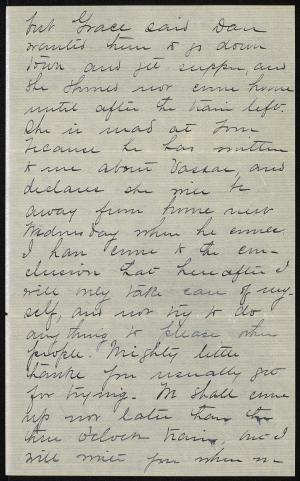 but Grace said Dan
wanted them to go down
town and get supper, and
she should not come home
until after the train left.
She is mad at Tom
because he has written
to me about Vassar, and
declares she will be
away from home next
Wednesday when he comes.
I have come to the con-
clusion that hereafter I
will only take care of my-
self, and not try to do
anything to please other
people. Mighty little
thanks you usually get
for trying. We shall come
up not later than the
three o'clock train, and I
will write you when we